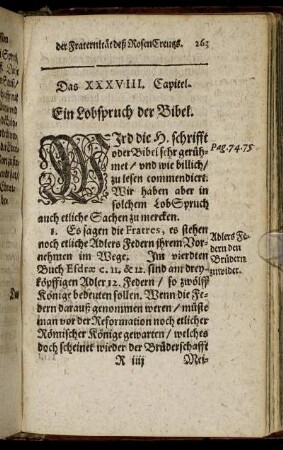 der Fraternitåt deß RosenCreutzs. 263
Das XXXVIII. Capitel.
Ein Lobspruch der Bibel.
WIrd die H. schrifft
oder Bibel sehr gerüh-
met / vnd wie billich/
zu lesen commendiert.
Wir haben aber in
solchem LobSpruch
auch etliche Sachen zu mercken.
Pag. 74. 75.
1. Es sagen die Fratres, es stehen
noch etliche Adlers Federn jhrem Vor-
nehmen im Wege. Im vierdten
Buch Esdræ c. 11. & 12. sind am drey-
köpffigen Adler 12. Federn / so zwölff
Könige bedeuten sollen. Wenn die Fe-
dern darauß genommen weren / müste
man vor der Reformation noch etlicher
Römischer Könige gewarten / welches
doch scheinet wieder der Brüderschafft
Adlers Fe-
dern den
Brüdern
zuwider.
R iiij Mei-